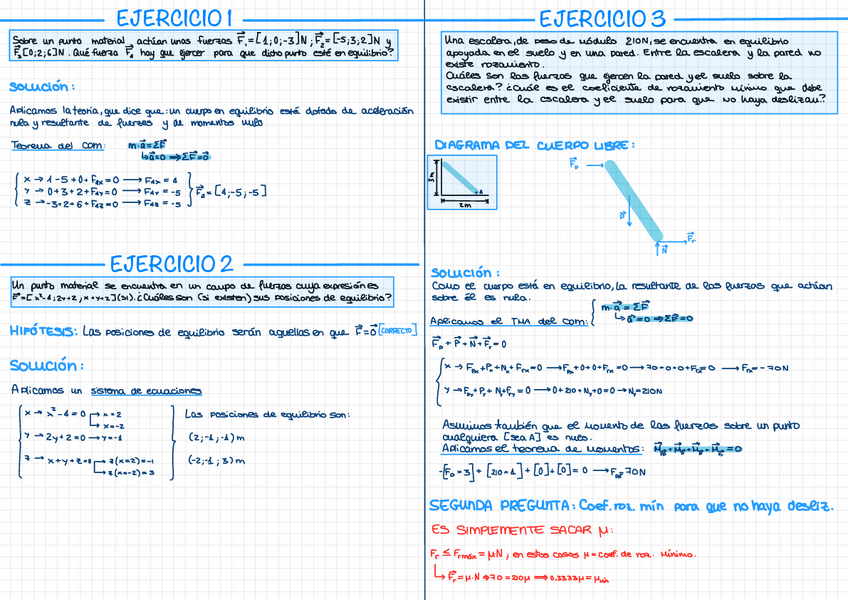 EJERCICIO 1
Sobre un punto material actúan unas fuerzas F⃗₁=[1;0;-3]N; F⃗₂=[-5;3;2]N y
F⃗₃[0;2;6]N. Qué fuerza F⃗₄ hay que ejercer para que dicho punto esté en equilibrio?
SOLUCIÓN:
Aplicamos la teoría, que dice que: un cuerpo en equilibrio está dotado de aceleración
nula y resultante de fuerzas y de momentos nulo
Teorema del COM: m·a⃗=ΣF⃗
↳a⃗=0 ⟹ΣF⃗=0⃗
x → 1-5+0+F₄x=0 → F₄x = 4
y → 0+3+2+F₄y=0 → F₄y = -5
z → -3+2+6+F₄z=0 → F₄z = -5
F⃗₄=[4;-5;-5]
EJERCICIO 2
Un punto material se encuentra en un campo de fuerzas cuya expresión es
F⃗=[x²-4;2y+2;x+y+z](SI). ¿Cuáles son (si existen) sus posiciones de equilibrio?
HIPÓTESIS: Las posiciones de equilibrio serán aquellas en que F⃗=0⃗ [CORRECTO]
SOLUCIÓN:
Aplicamos un sistema de ecuaciones
x → x²-4=0 → x=2
→ x=-2
y → 2y+2=0 → y=-1
z → x+y+z=0 → z(x=2)=-1
→ z(x=-2)=3
Las posiciones de equilibrio son:
(2;-1;-1)m
(-2;-1;3)m
EJERCICIO 3
Una escalera, de peso de módulo 210N, se encuentra en equilibrio
apoyada en el suelo y en una pared. Entre la escalera y la pared no
existe rozamiento.
Cuáles son las fuerzas que ejercen la pared y el suelo sobre la
escalera? ¿Cuál es el coeficiente de rozamiento mínimo que debe
existir entre la escalera y el suelo para que no haya deslizam?
DIAGRAMA DEL CUERPO LIBRE:
3m
A
2m
F⃗ₚ
P⃗
F⃗r
N⃗
SOLUCIÓN:
Como el cuerpo está en equilibrio, la resultante de las fuerzas que actúan
sobre él es nula.
Aplicamos el TMA del COM:
m·a⃗=ΣF⃗
↳a⃗=0 ⟹ΣF⃗=0
F⃗ₚ+P⃗+N⃗+F⃗r=0
x → Fₚx+Pₓ+Nₓ+Frx=0 → Fₚx+0+0+Frx=0 → 70+0+0+Frx=0 → Frx=-70N
y → Fₚy+Py+Ny+Fry=0 → 0+210+Ny+0=0 → Ny=210N
Asumimos también que el momento de las fuerzas sobre un punto
cualquiera [sea A] es nulo.
Aplicamos el teorema de momentos:
-[Fₚ·3]+[210·1]+[0]+[0]=0
70N
SEGUNDA PREGUNTA: Coef. roz. mín para que no haya desliz.
ES SIMPLEMENTE SACAR μ:
Fr ≤ Frmáx = μN; en estos casos μ=coef. de roz. mínimo.
↳ F⃗r=μ·N ⟹ 70=210μ ⟹ 0.3333μ=μmín